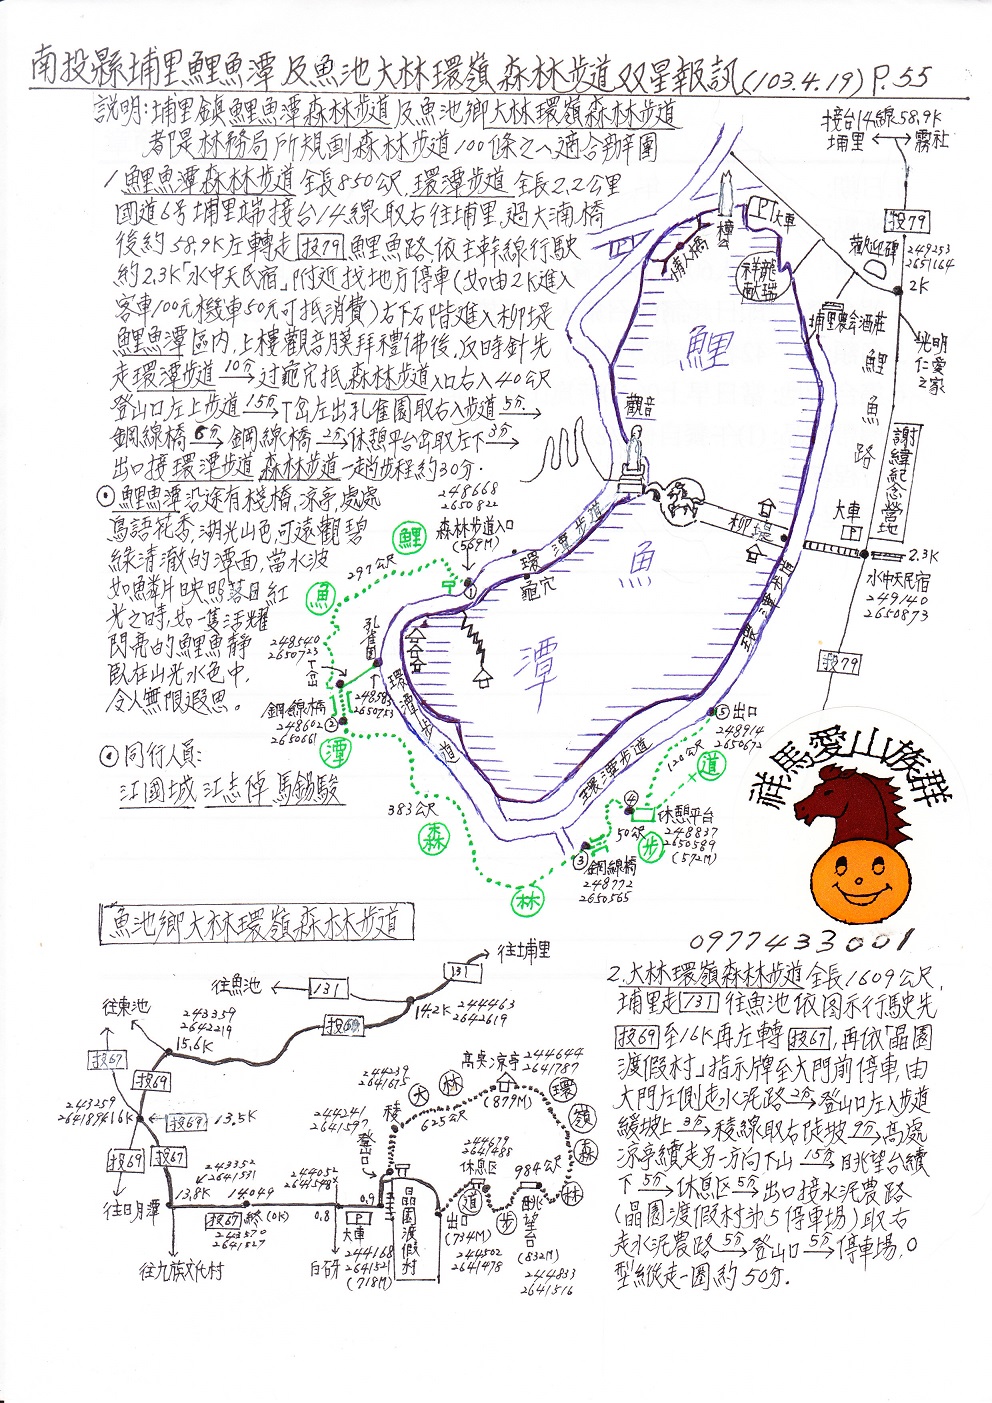 南投縣埔里鯉魚潭及魚池大林環嶺森林步道双星報訊(103.4.19)P.55
說明:埔里鎮鯉魚潭森林步道及魚池鄉大林環嶺森林步道
都是林務局所規劃森林步道100條之一適合
1.鯉魚潭森林步道全長850公尺.環潭步道全長2.2公里
國道6号埔里端接台14線取右往埔里,過大湳橋
後約58.9K左轉走投79鯉魚路.依主幹線行駛
約2.3K「水中天民宿」附近找地方停車(如由2K進入
客車100元機車50元可抵消費)右下石階進入柳堤
鯉魚潭區內,上樓觀音膜拜禮佛後,反時針先
走環潭步道10分→过龜穴抵森林步道入口右入40公尺
登山口左上步道15分→T岔左出孔雀園取右入步道5分→
鋼線橋6分→鋼線橋2分→休憩平台岔取左下3分→
出口接環潭步道.森林步道一趟步程約30分.
⊙鯉魚潭沿途有棧橋.涼亭.處處
鳥語花香,湖光山色,可遠觀碧
綠清澈的潭面,當水波
如魚鱗片映照落日紅
光之時,如一隻活耀
閃亮的鯉魚靜
臥在山光水色中,
令人無限遐思。
⊙同行人員:
江國城 江志倬 馬錫駿
接台14線58.9K
埔里←→霧社
投79
歡迎碑
249253
2651164
2K
P大車
樓
情人橋
祥龍
獻瑞
埔里農会酒莊
光明
仁愛
之家
鯉魚路
謝緯紀念營地
鯉
魚
潭
觀音
柳堤
大車
P
2.3K
水中天民宿
249140
2650873
投79
環潭步道
環潭步道
龜穴
248668
2650822
森林步道入口
(569M)
①
297公尺
鯉
魚
潭
森
林
步
道
248540
2650723
T岔
孔雀園
248583
2650753
鋼線橋
248602
2650661
②
環潭步道
環潭步道
383公尺
⑤出口
248914
2650672
120公尺
④
休憩平台
248837
2650589
(572M)
50公尺
③鋼線橋
248772
2650565
祥馬愛山族群
0977433001
魚池鄉大林環嶺森林步道
往埔里
131
往魚池
131
14.2K
244463
2642619
投69
往東池
243359
2642219
15.6K
投67
投69
243259
2641894
16K
投69
13.5K
投69
投67
往日月潭
13.8K
243352
2641531
14049
投67
終(0K)
243570
2641527
往九族文化村
244052
2641548
0.8
0.9
白砑
P
大車
244168
2641521
(718M)
晶園渡假村
登山口
244241
2641597
稜
244239
2641675
625公尺
大林環嶺森林步道
高尖涼亭
244644
2641787
(879M)
984公尺
眺望台
(832M)
244833
2641516
244679
2641488
休息区
出口
(734M)
244502
2641478
2.大林環嶺森林步道全長1609公尺,
埔里走131往魚池依图示行駛先
投69至16K再左轉投67,再依「晶園
渡假村」指示牌至大門前停車,由
大門左側走水泥路2分→登山口左入步道
緩坡上3分→稜線取右陡坡9分→高處
涼亭續走另一方向下山15分→眺望台續
下5分→休息区5分→出口接水泥農路
(晶園渡假村沵5停車場)取右
走水泥農路5分→登山口5分→停車場,O
型縱走一圈約50分.